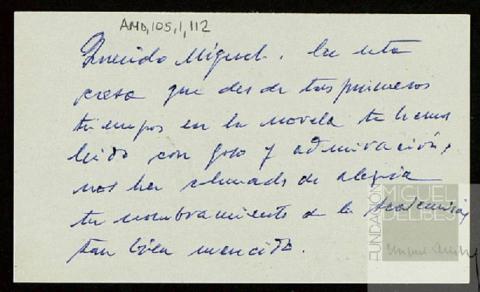 AMD,105,1,112
Querido Miguel. En esta
casa que desde tus primeros
tiempos en la novela te hemos
leido con gozo y admiración,
nos ha llenado de alegría
tu nombramiento de la Academia,
tan bien merecido.
FUNDACIÓN
MIGUEL
DELIBES